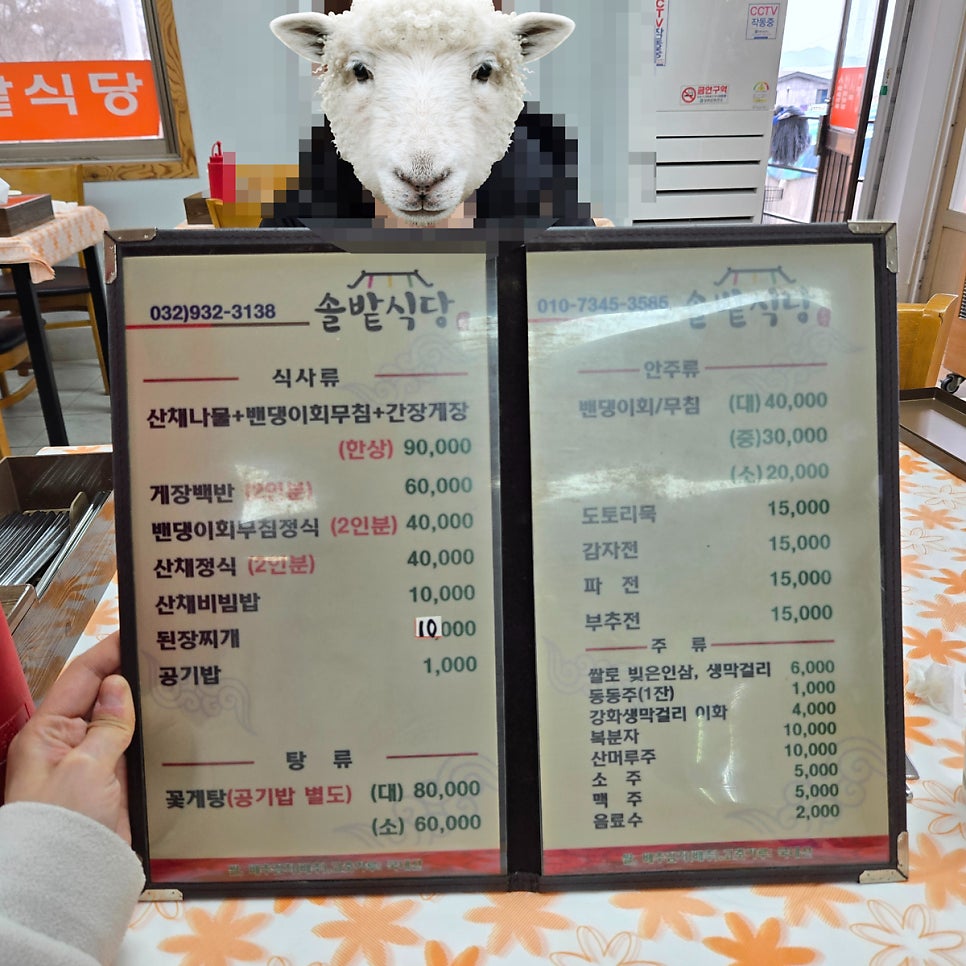 밭식당
CCTV
작동중
CCTV
작동중
금연구역
032)932-3138
솔밭식당
식사류
산채나물+밴댕이회무침+간장게장
(한상) 90,000
게장백반 (2인분) 60,000
밴댕이회무침정식 (2인분) 40,000
산채정식 (2인분) 40,000
산채비빔밥 10,000
된장찌개 10,000
공기밥 1,000
탕 류
꽃게탕(공기밥 별도) (대) 80,000
(소) 60,000
010-7345-3585
솔밭식당
안주류
밴댕이회/무침 (대) 40,000
(중)30,000
(소)20,000
도토리묵 15,000
감자전 15,000
파 전 15,000
부추전 15,000
주 류
쌀로 빚은인삼, 생막걸리 6,000
동동주(1잔) 1,000
강화생막걸리 이화 4,000
복분자 10,000
산머루주 10,000
소 주 5,000
맥 주 5,000
음료수 2,000